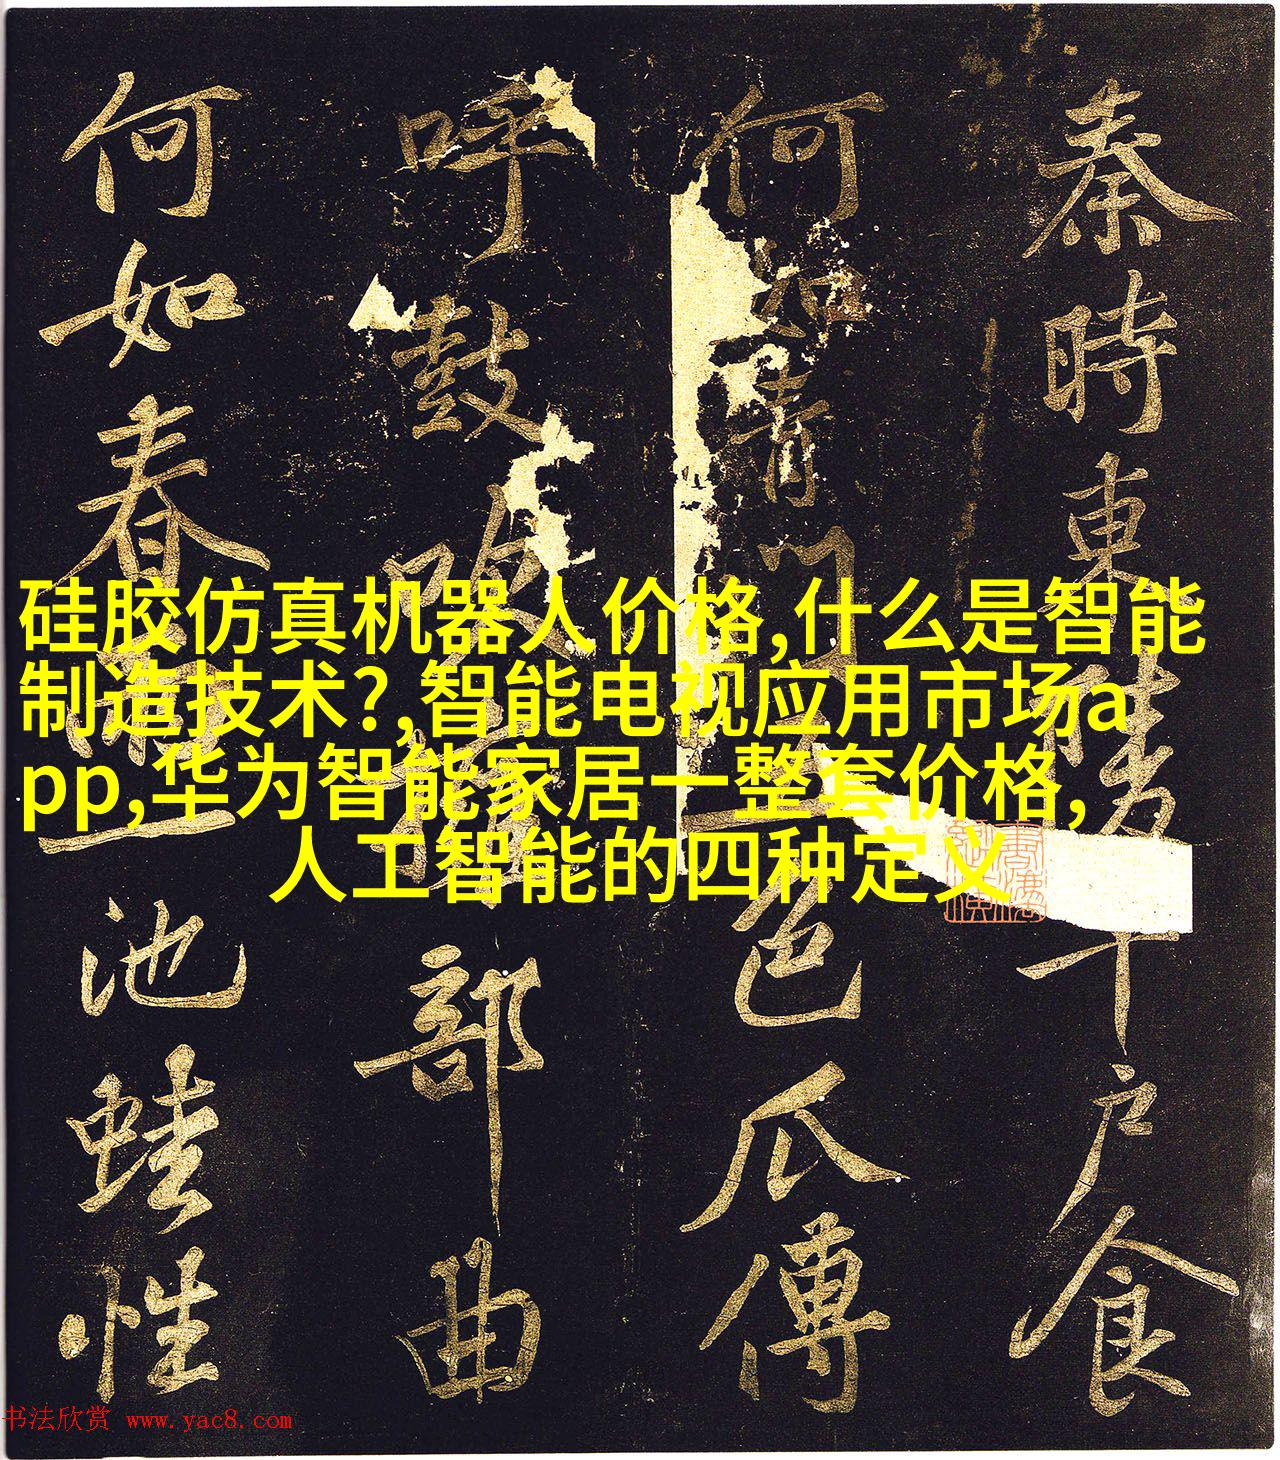 秦時東陵千户食
何如青門色瓜傳
呼鼓吹部曲
何如春雨一池蛙性
硅胶仿真机器人价格,什么是智能
制造技术?,智能电视应用市场a
pp,华为智能家居一整套价格,
人工智能的四种定义
书法欣赏 www.yac8.com